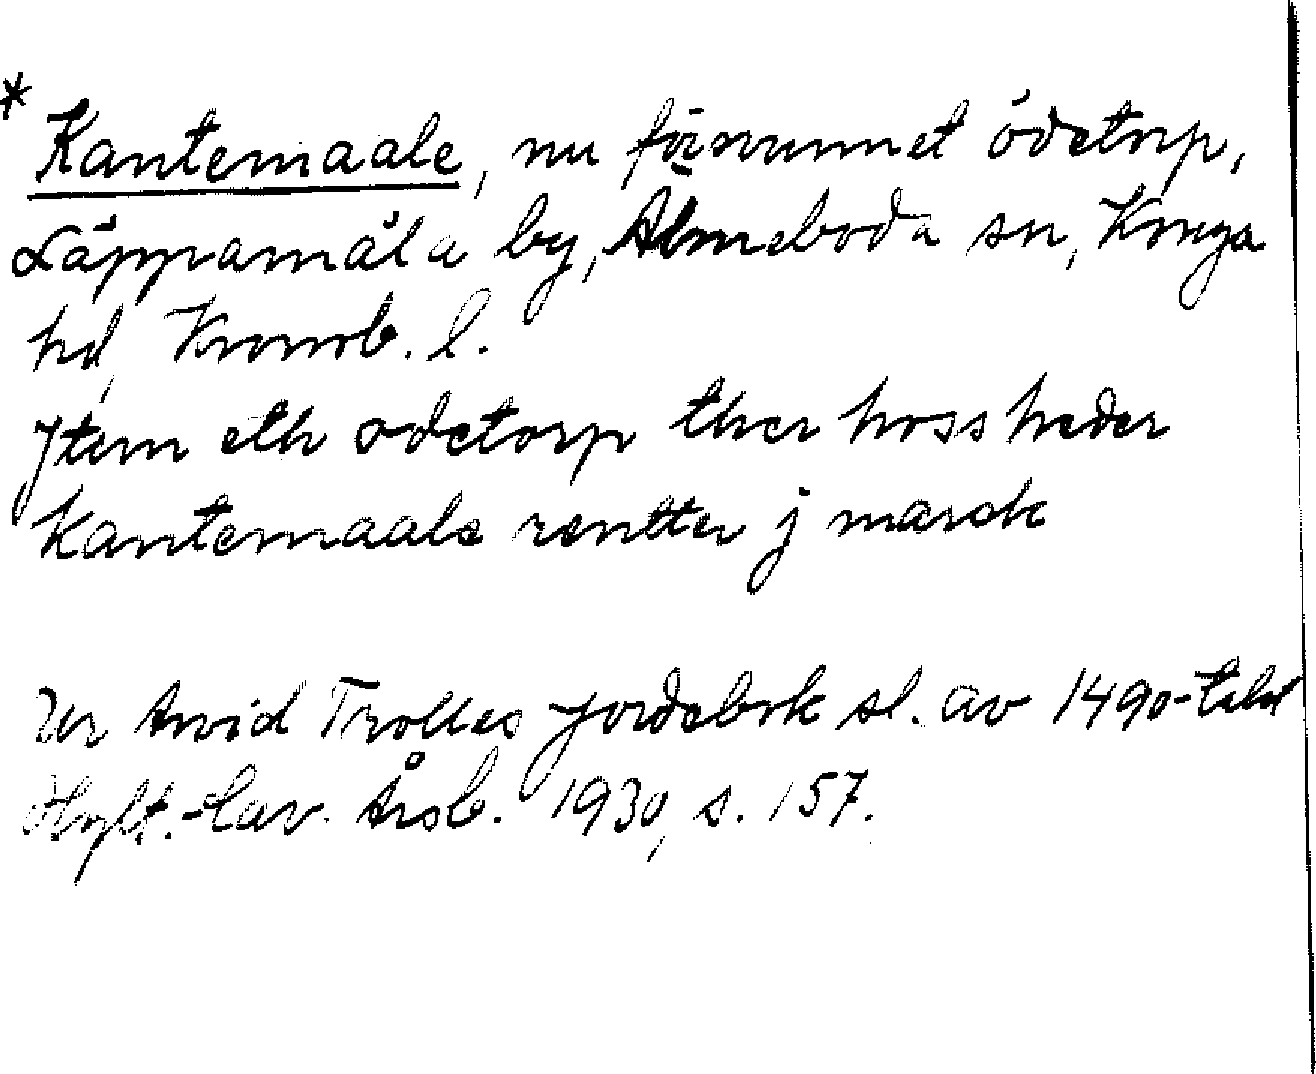 * Kantemaale, nu försvunnet ödetorp,
Läppamåla by, Almeboda sn, Konga
hd, Kronob. l.
Jtem eth odetorp ther hoss heder
Kantemaale rentter j marck
Ur Arvid Trolles jordebok sl. av 1490-talet
Hylt.-Cav. Årsb. 1930, s. 157.